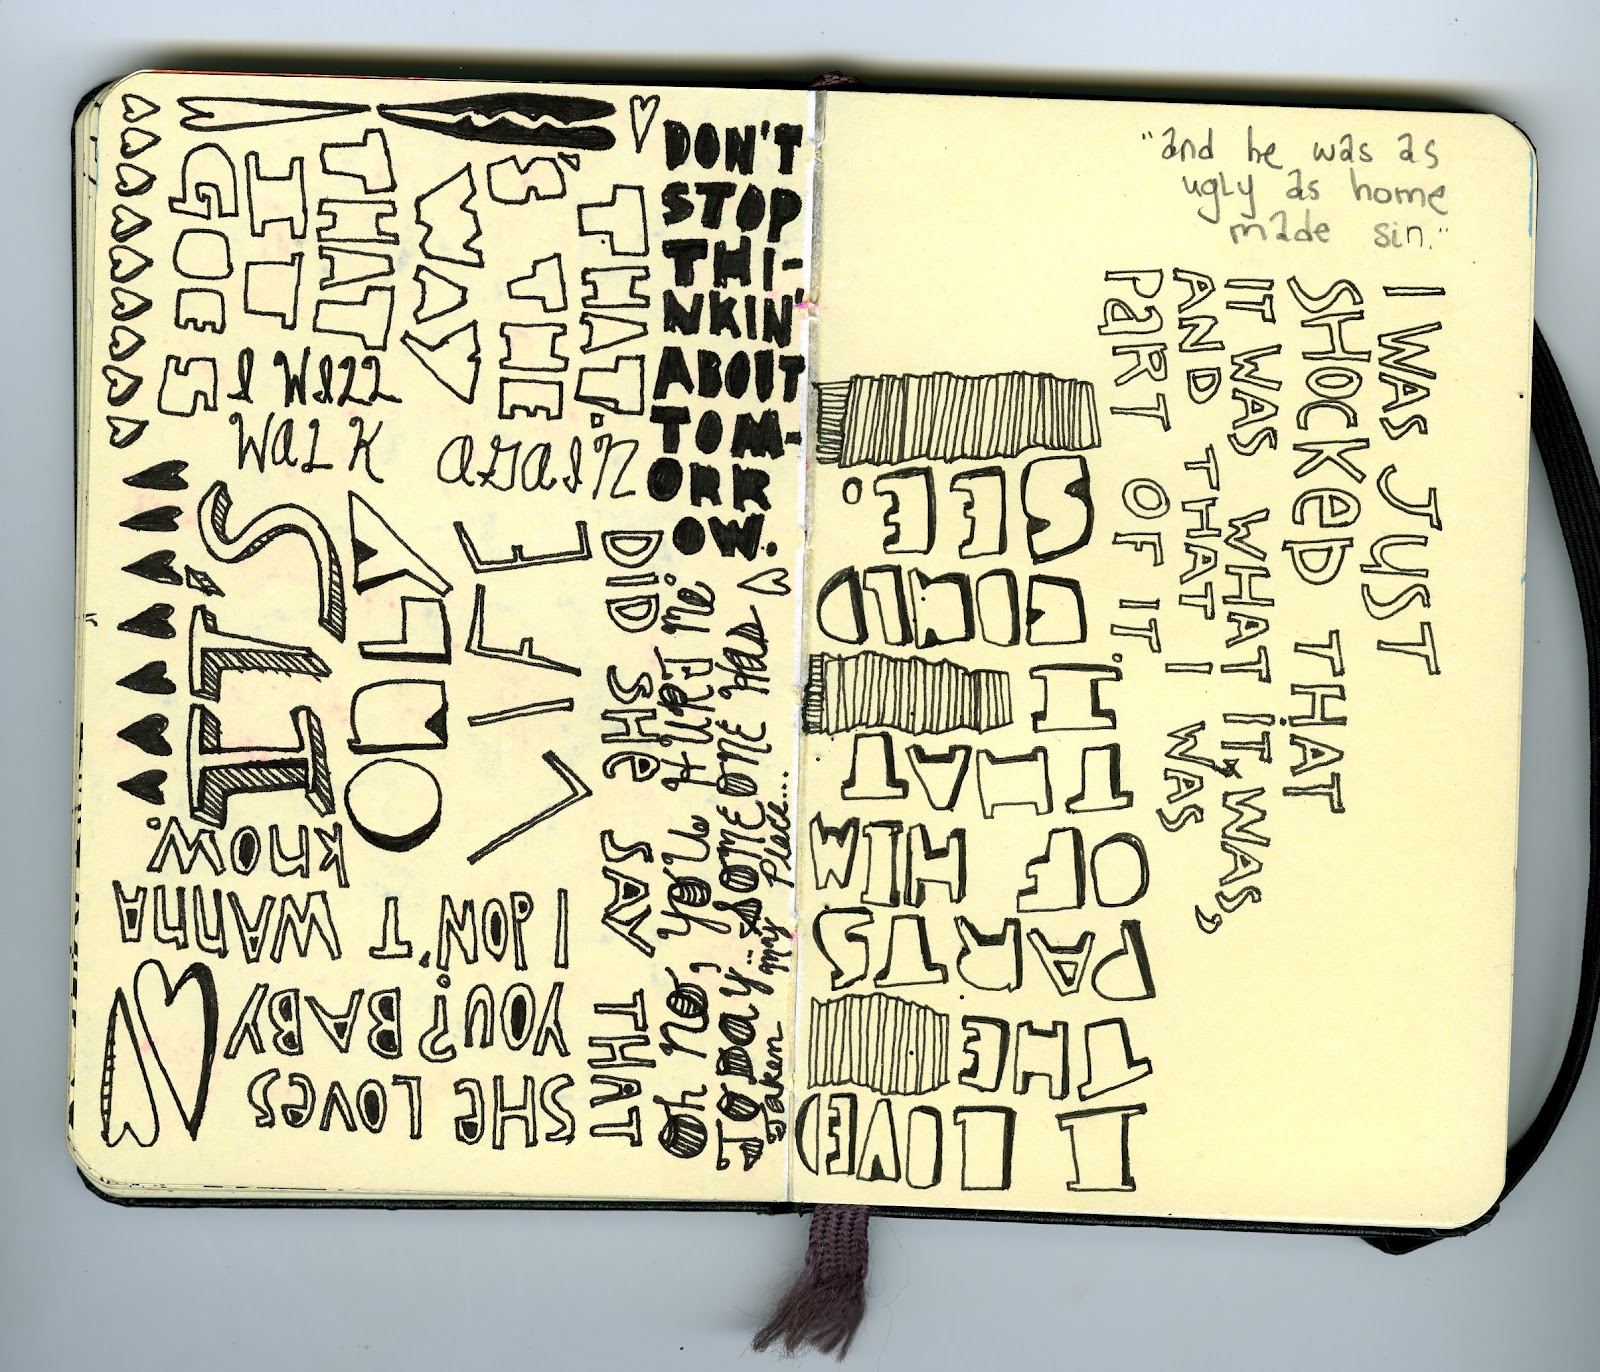 DON'T
STOP
THI-
NKIN'
ABOUT
TOM-
ORR
OW.
THAT
'S THE
WAY
THAT
IT
GOES
I WILL
WALK AGAIN
IT'S
ONLY
LIFE
DID SHE SAY THAT
SHE LOVES
YOU? BABY
I DON'T WANNA
KNOW.
oh no, you HURT me.
Today... SOMEONE HAS
Taken my Place...
"and he was as
ugly as home
made sin."
I WAS JUST
SHOCKED THAT
IT WAS WHAT IT WAS,
AND THAT I WAS
PART OF IT.
I LOVED
THE
PARTS
OF HIM
THAT
I COULD
SEE.